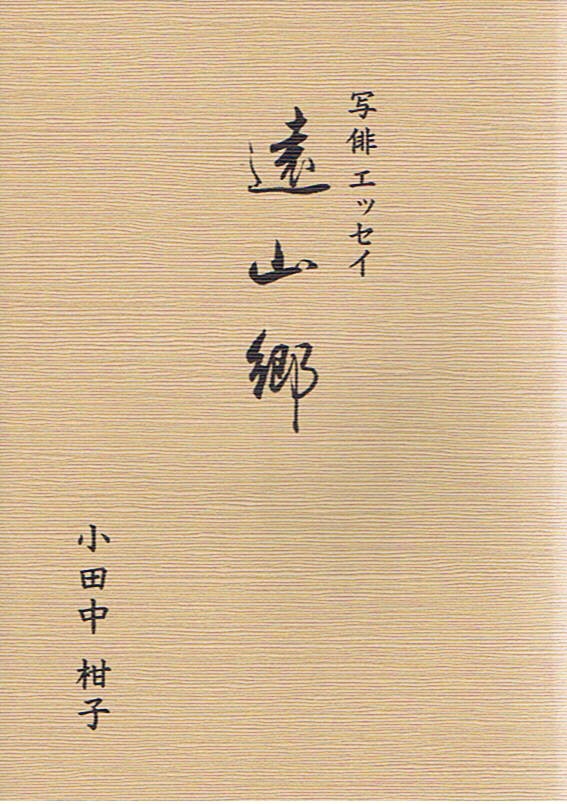 写俳エッセイ
遠山郷
小田中 柑子